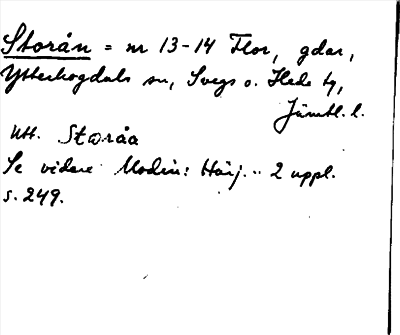 Storån = nr 13-14 Flor, gdar,
Ytterhogdals sn, Svegs o. Hede tg,
Jämtl. l.
Utt. Storåa
Se vidare Modin: Härj... 2 uppl.
s. 249.